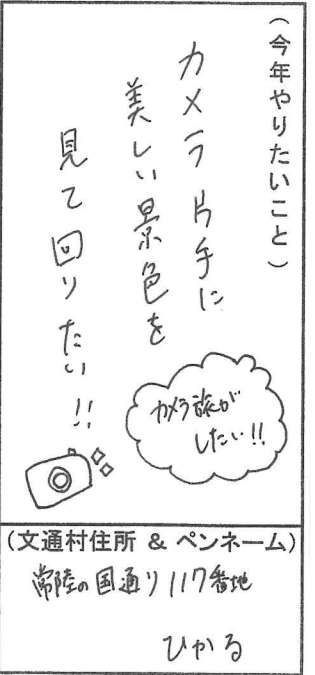 (今年やりたいこと)
カメラ片手に
美しい景色を
見て回りたい!!
カメラ旅が
したい!!
(文通村住所 & ペンネーム)
常陸の国通り117番地
ひかる